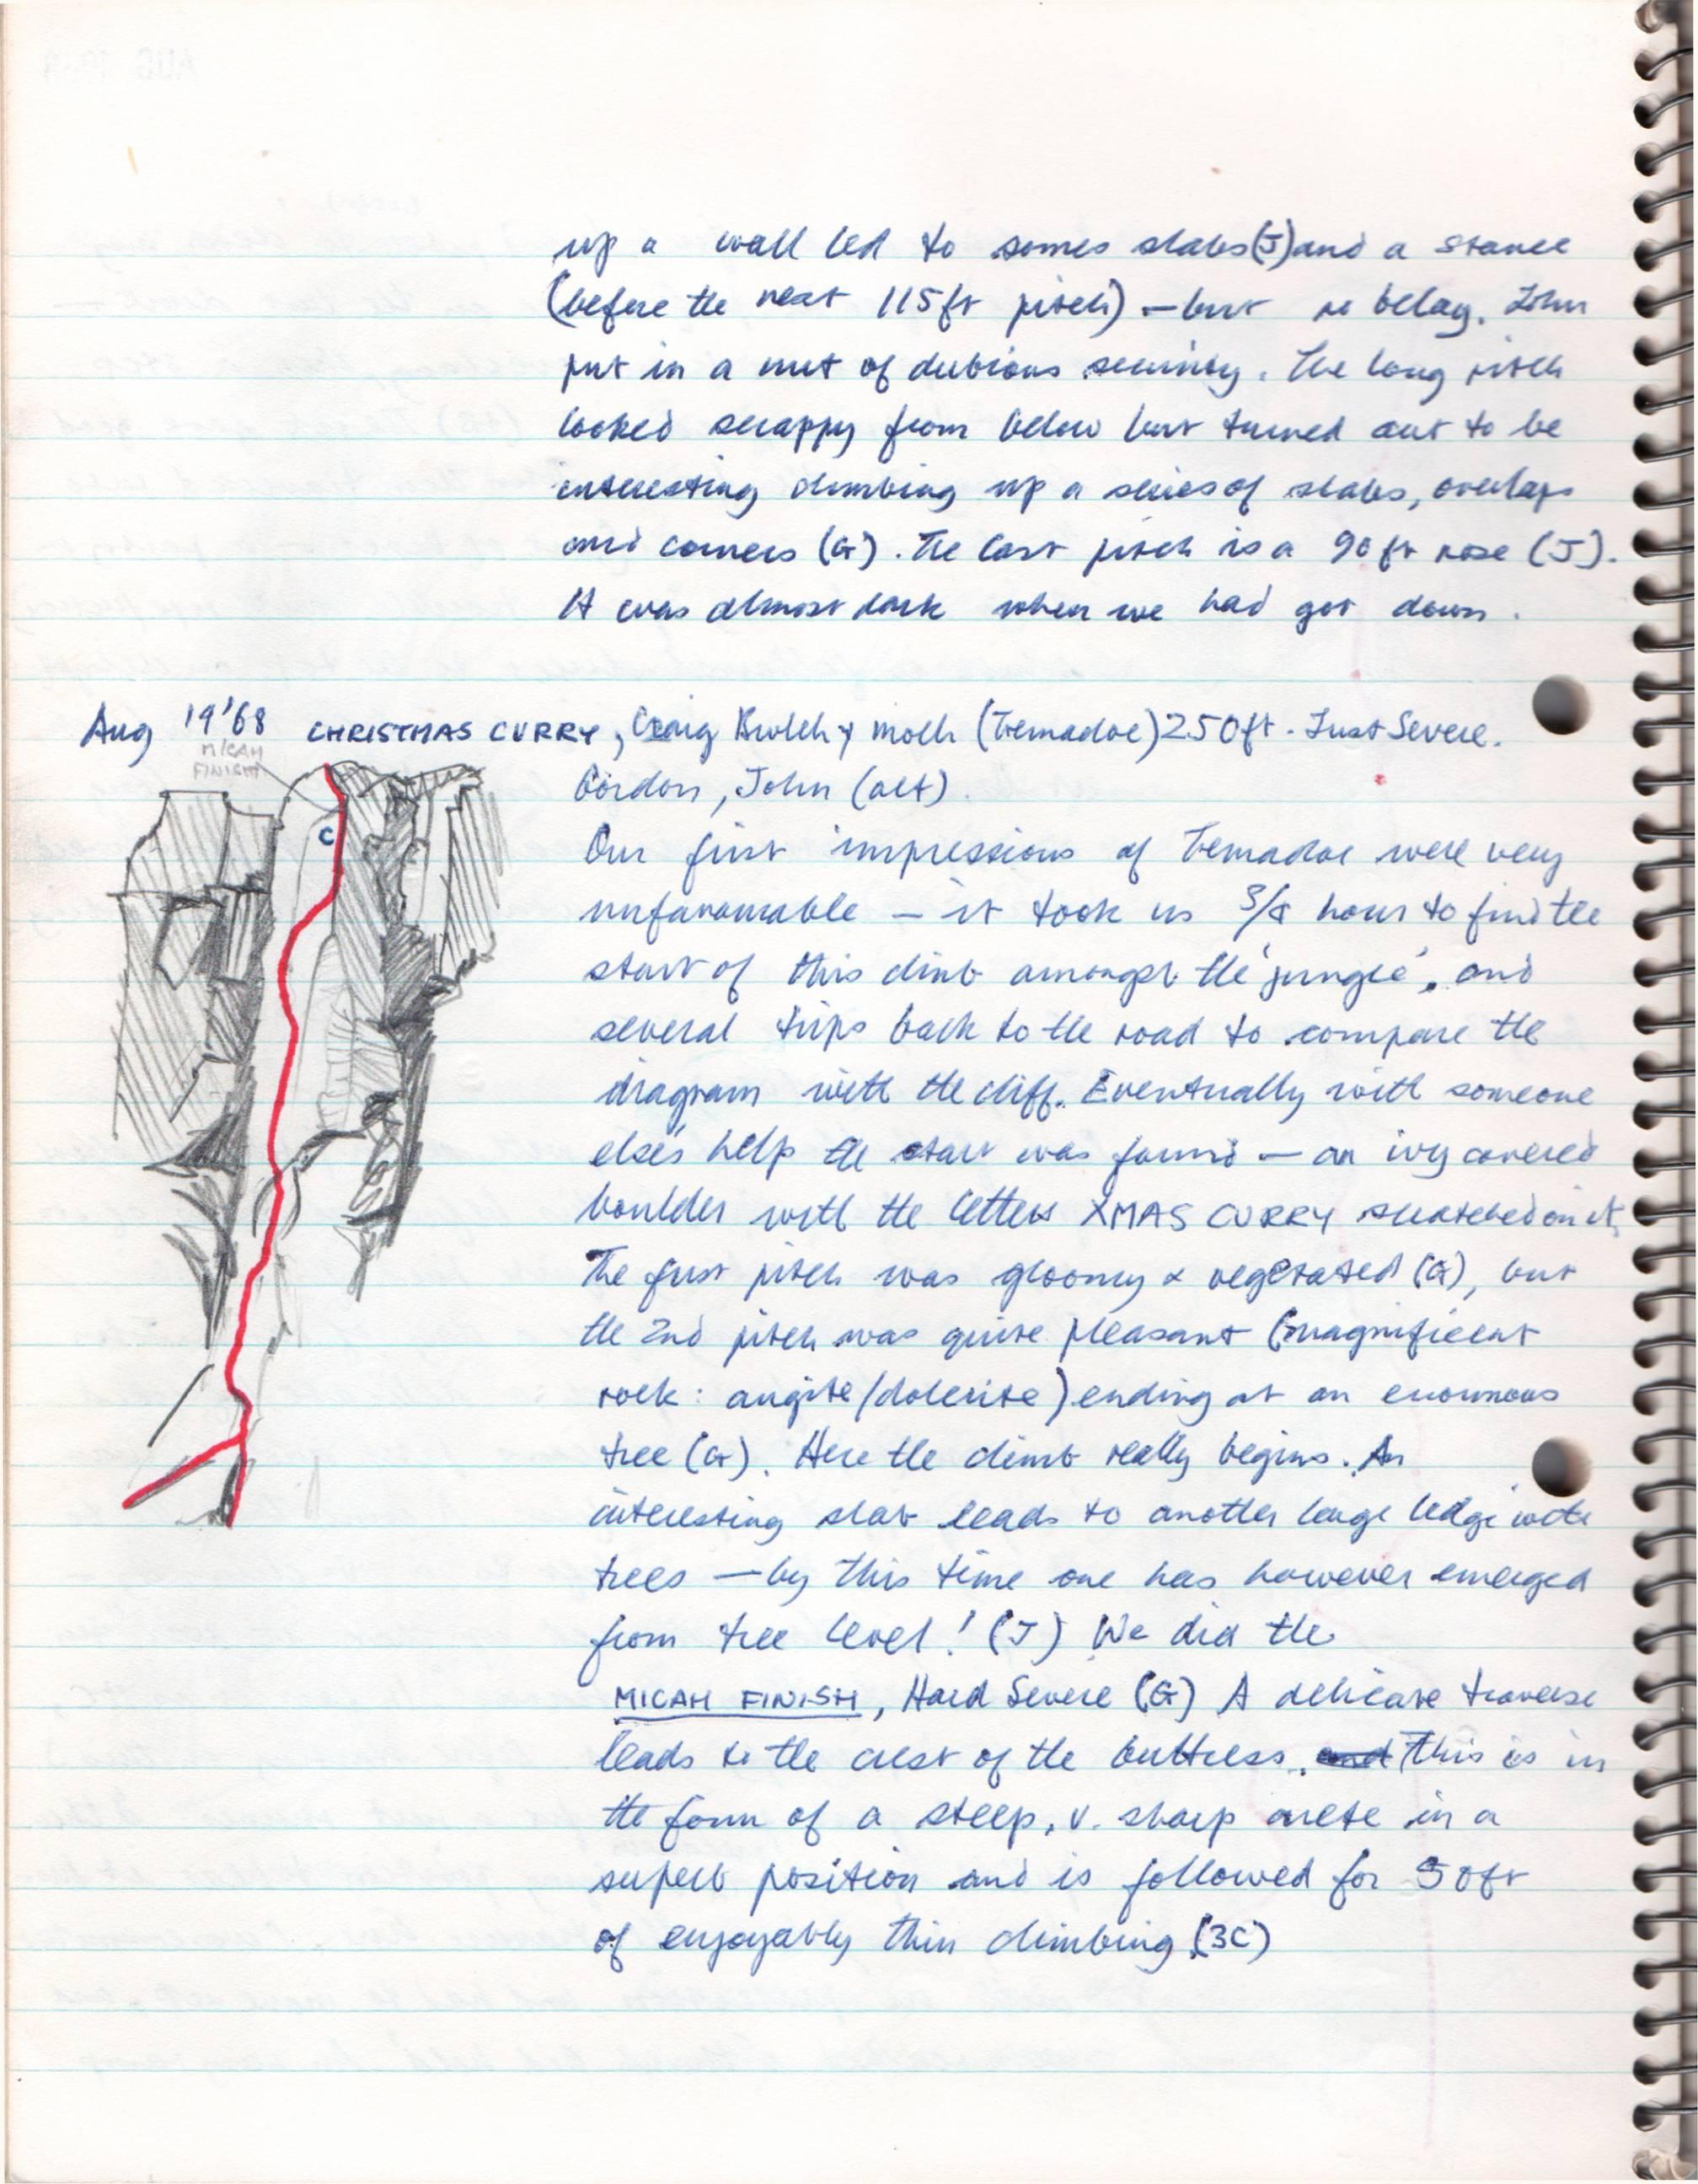 up a wall led to somes slabs (J) and a stance
(before the next 115ft pitch) — but no belay. John
put in a nut of dubious security. The long pitch
looked scrappy from below but turned out to be
interesting climbing up a series of slabs, overlaps
and corners (G). The last pitch is a 90ft nose (J).
It was almost dark when we had got down.
Aug 19'68 CHRISTMAS CURRY, Craig Bwlch y moch (Tremadoc) 250ft. Just Severe.
MICAH
FINISH
Gordon, John (alt)
C
Our first impressions of Tremadoc were very
unfavourable — it took us 3/4 hour to find the
start of this climb amongst the 'jungle', and
several trips back to the road to compare the
diagram with the cliff. Eventually with someone
else's help the start was found — an ivy covered
boulder with the letters XMAS CURRY scratched on it.
The first pitch was gloomy & vegetated (G), but
the 2nd pitch was quite pleasant (magnificent
rock: augite/dolerite) ending at an enormous
tree (G). Here the climb really begins. An
interesting slab leads to another large ledge with
trees — by this time one has however emerged
from tree level! (J) We did the
MICAH FINISH, Hard Severe (G) A delicate traverse
leads to the crest of the buttress. and This is in
the form of a steep, v. sharp arete in a
superb position and is followed for 50ft
of enjoyably thin climbing (3C)